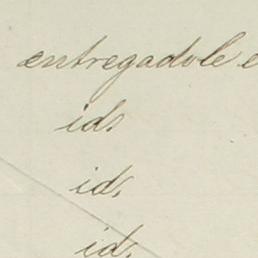 entregadole e
id.
id.
id.